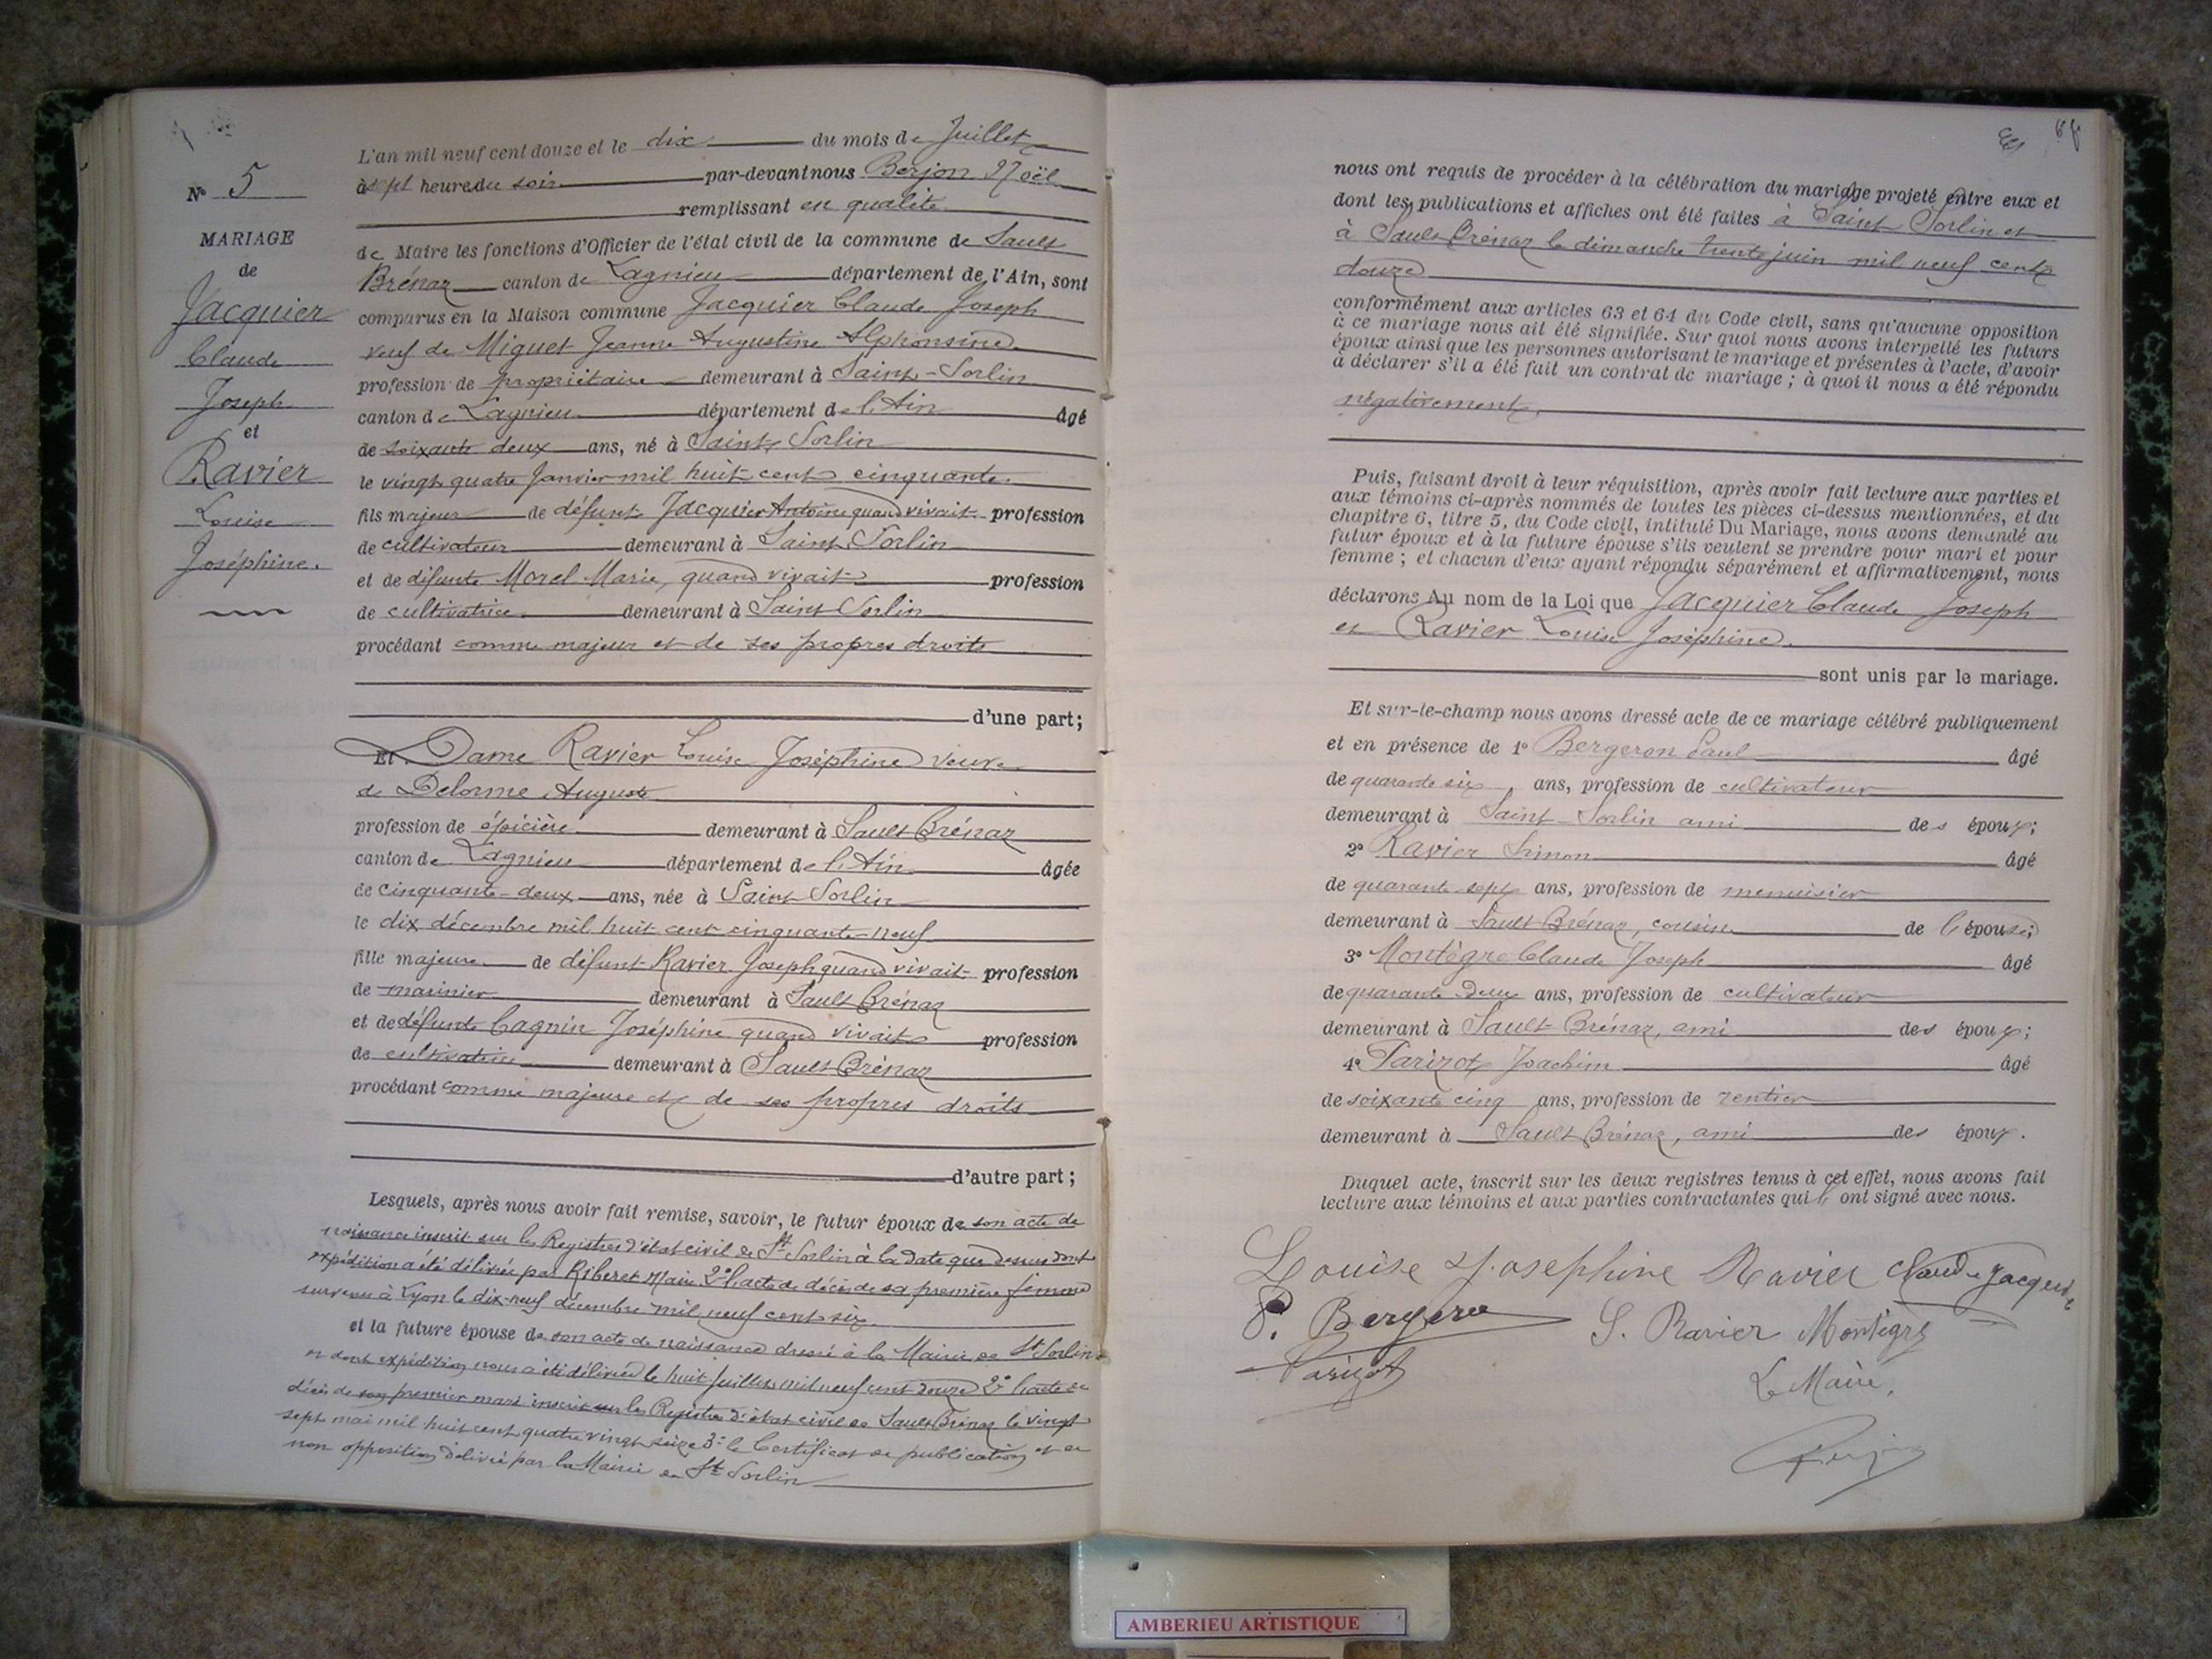 N° 5
MARIAGE
de
Jacquier
Claude
Joseph
et
Ravier
Louise
Joséphine.
L'an mil neuf cent douze et le dix du mois de Juillet
à sept heures du soir par-devant nous Berjon Noël
remplissant en qualité
de Maire les fonctions d'Officier de l'état civil de la commune de Sault
Brénaz canton de Lagnieu département de l'Ain, sont
comparus en la Maison commune Jacquier Claude Joseph
veuf de Miguet Jeanne Augustine Alphonsine
profession de propriétaire demeurant à Saint-Sorlin
canton de Lagnieu département de l'Ain âgé
de soixante deux ans, né à Saint Sorlin
le vingt quatre Janvier mil huit cent cinquante.
fils majeur de défunt Jacquier Antoine quand vivait profession
de cultivateur demeurant à Saint Sorlin
et de défunte Morel Marie, quand vivait profession
de cultivatrice demeurant à Saint Sorlin
procédant comme majeur et de ses propres droits
d'une part;
Et Dame Ravier Louise Joséphine veuve
de Delorme Auguste
profession de épicière demeurant à Sault Brénaz
canton de Lagnieu département de l'Ain âgée
de cinquante-deux ans, née à Saint Sorlin
le dix décembre mil huit cent cinquante-neuf
fille majeure de défunt Ravier Joseph quand vivait profession
de marinier demeurant à Sault Brénaz
et de défunte Cagnin Joséphine quand vivait profession
de cultivatrice demeurant à Sault Brénaz
procédant comme majeure et de ses propres droits
d'autre part;
Lesquels, après nous avoir fait remise, savoir, le futur époux de son acte de
naissance inscrit sur les Registres d'état civil de St Sorlin à la date que dessus dont
expédition a été délivrée par Riberet Maire 2° l'acte de décès de sa première femme
survenu à Lyon le dix-neuf décembre mil neuf cent six.
et la future épouse de son acte de naissance dressé à la Mairie de St Sorlin
et dont expédition nous a été délivrée le huit juillet mil neuf cent douze 2° l'acte de
décès de son premier mari inscrit sur les Registres d'état civil de Sault Brénaz le vingt
sept mai mil huit cent quatre vingt seize 3° le Certificat de publication et de
non opposition délivré par la Mairie de St Sorlin
nous ont requis de procéder à la célébration du mariage projeté entre eux et
dont les publications et affiches ont été faites à Saint Sorlin et
à Sault Brénaz le dimanche trente juin mil neuf cent
douze
conformément aux articles 63 et 64 du Code civil, sans qu'aucune opposition
à ce mariage nous ait été signifiée. Sur quoi nous avons interpellé les futurs
époux ainsi que les personnes autorisant le mariage et présentes à l'acte, d'avoir
à déclarer s'il a été fait un contrat de mariage; à quoi il nous a été répondu
négativement.
Puis, faisant droit à leur réquisition, après avoir fait lecture aux parties et
aux témoins ci-après nommés de toutes les pièces ci-dessus mentionnées, et du
chapitre 6, titre 5, du Code civil, intitulé Du Mariage, nous avons demandé au
futur époux et à la future épouse s'ils veulent se prendre pour mari et pour
femme; et chacun d'eux ayant répondu séparément et affirmativement, nous
déclarons Au nom de la Loi que Jacquier Claude Joseph
et Ravier Louise Joséphine.
sont unis par le mariage.
Et sur-le-champ nous avons dressé acte de ce mariage célébré publiquement
et en présence de 1° Bergeron Paul âgé
de quarante six ans, profession de cultivateur
demeurant à Saint-Sorlin ami des époux;
2° Ravier Simon âgé
de quarante sept ans, profession de menuisier
demeurant à Sault-Brénaz, cousin de l'épouse;
3° Montègre Claude Joseph âgé
de quarante deux ans, profession de cultivateur
demeurant à Sault-Brénaz, ami des époux;
4° Parizot Joachim âgé
de soixante cinq ans, profession de rentier
demeurant à Sault Brénaz, ami des époux.
Duquel acte, inscrit sur les deux registres tenus à cet effet, nous avons fait
lecture aux témoins et aux parties contractantes qui ont signé avec nous.
Louise Josephine Ravier Claude Jacquier
P. Bergeron S. Ravier Montègre
Parizot
Le Maire,
Berjon
AMBERIEU ARTISTIQUE